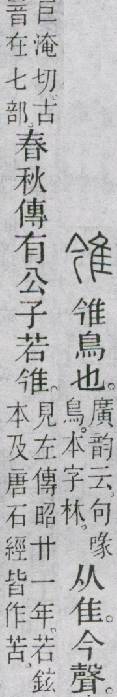 雂 雂鳥也。廣韵云。句喙鳥。本字林。从隹。今聲。
巨淹切。古音在七部。春秋傳有公子若雂。見左傳昭廿一年。若鉉本及唐石經皆作苦。